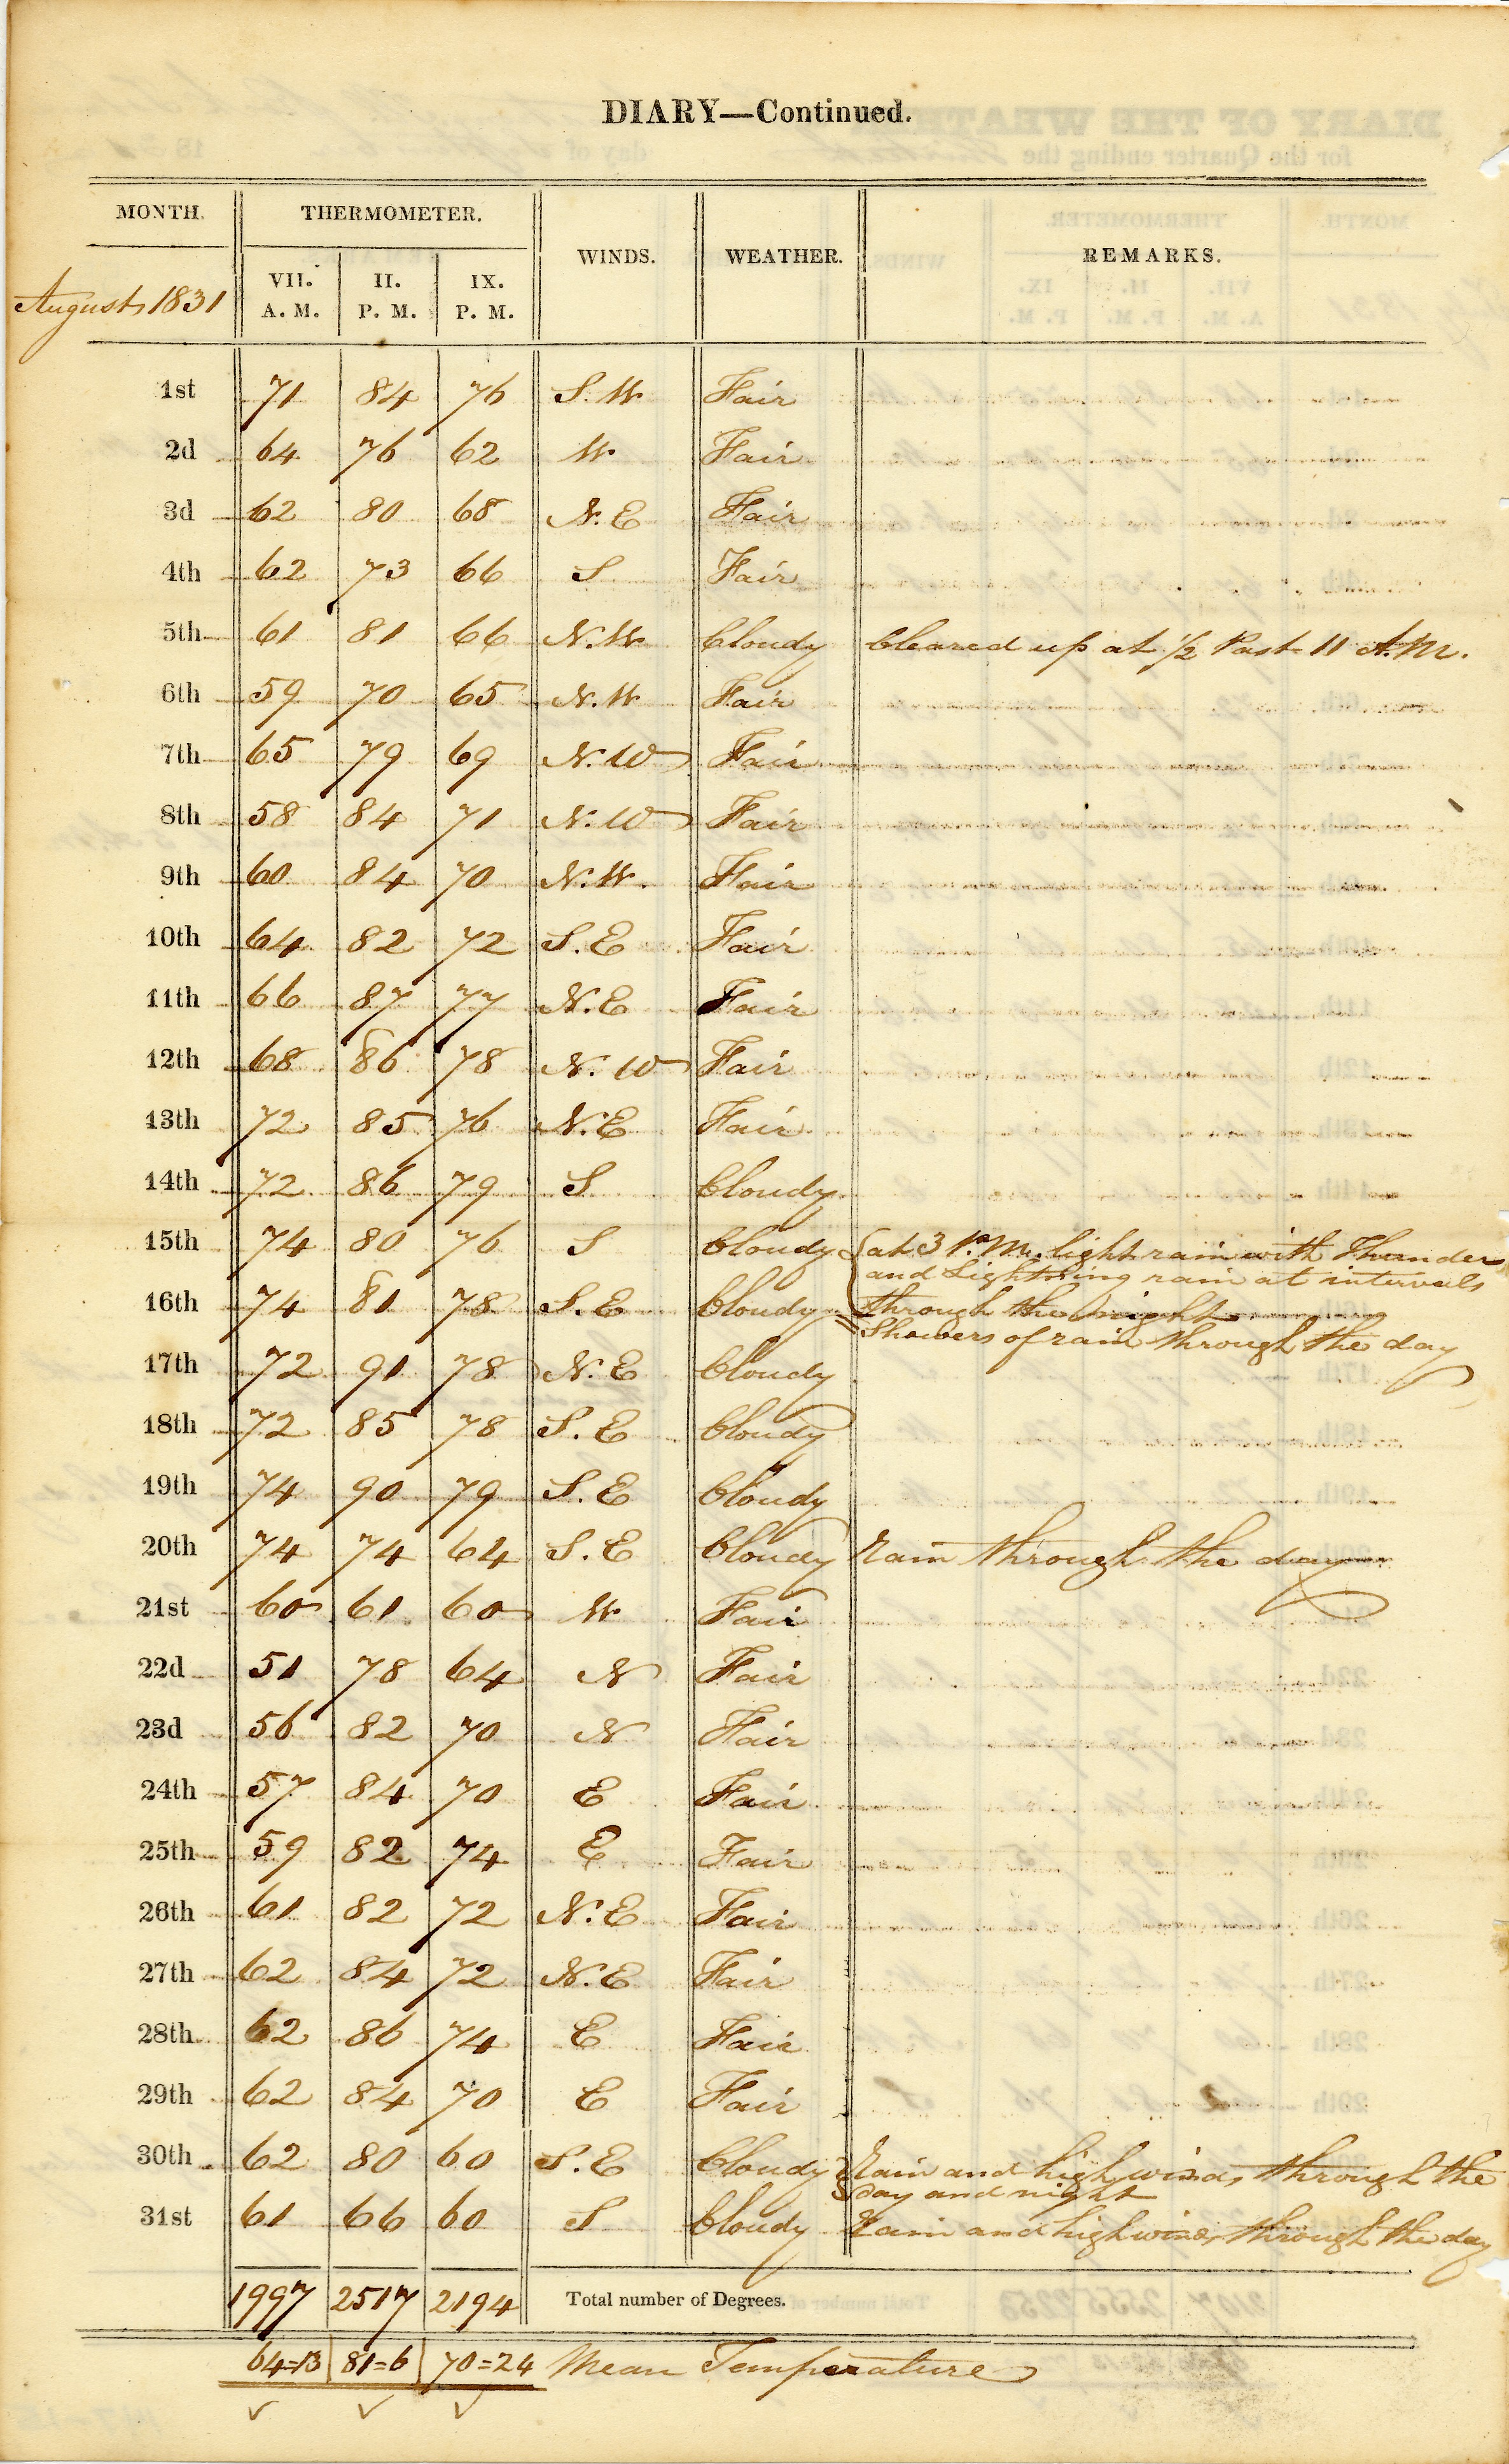 DIARY—Continued.
MONTH. THERMOMETER. WINDS. WEATHER. REMARKS.
August 1831 VII. A. M. II. P. M. IX. P. M.
1st 71 84 76 S.W. Fair
2d 64 76 62 W. Fair
3d 62 80 68 N.E Fair
4th 62 73 66 S Fair
5th 61 81 66 N.W. Cloudy Cleared up at ½ Past 11 A.M.
6th 59 70 65 N.W Fair
7th 65 79 69 N.W Fair
8th 58 84 71 N.W Fair
9th 60 84 70 N.W. Fair
10th 64 82 72 S.E Fair
11th 66 87 77 N.E Fair
12th 68 86 78 N.W Fair
13th 72 85 76 N.E Fair
14th 72 86 79 S Cloudy
15th 74 80 76 S Cloudy at 3 P.M. light rain with Thunder
and Lightning rain at intervals
16th 74 81 78 S.E Cloudy through the night
Showers of rain through the day
17th 72 91 78 N.E Cloudy
18th 72 85 78 S.E Cloudy
19th 74 90 79 S.E Cloudy
20th 74 74 64 S.E Cloudy Rain through the day
21st 60 61 60 W Fair
22d 51 78 64 N Fair
23d 56 82 70 N Fair
24th 57 84 70 E Fair
25th 59 82 74 E Fair
26th 61 82 72 N.E Fair
27th 62 84 72 N.E Fair
28th 62 86 74 E Fair
29th 62 84 70 E Fair
30th 62 80 60 S.E Cloudy Rain and high winds through the
day and night
31st 61 66 60 S Cloudy Rain and high winds through the day
1997 2517 2194 Total number of Degrees.
64=13 81=6 70=24 Mean Temperature